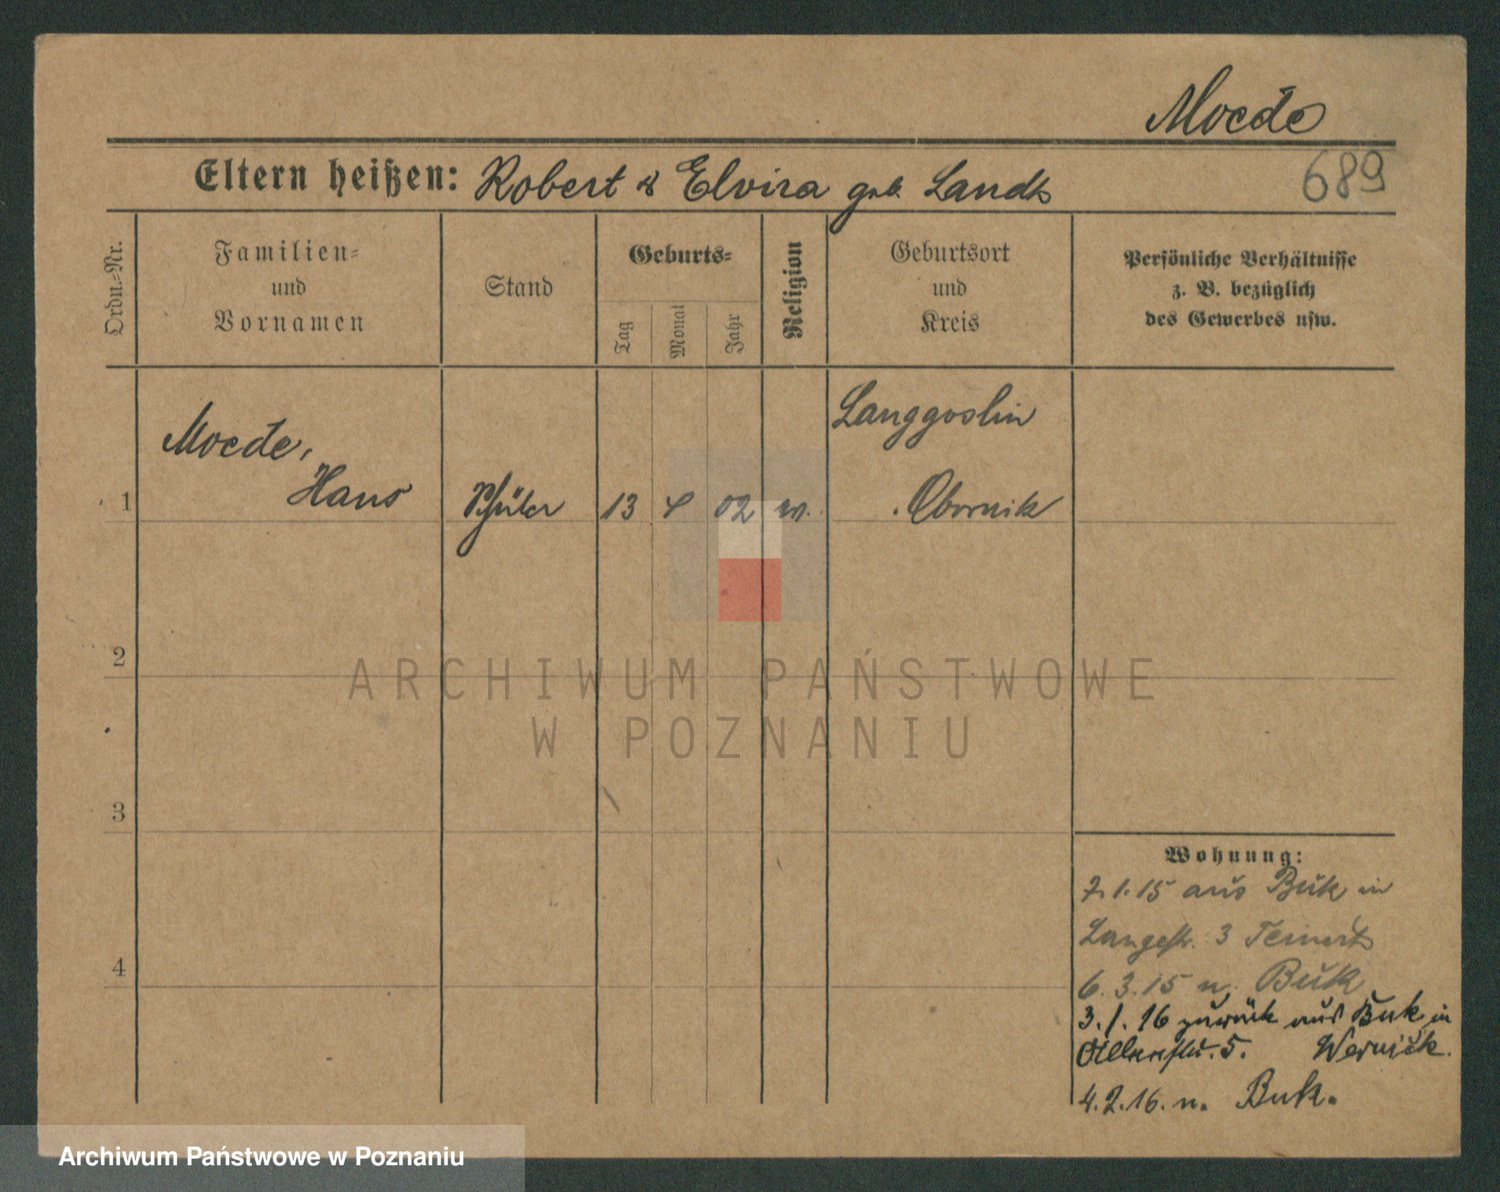 Moede
Eltern heißen: Robert & Elvira geb. Landk
689
Ordn.-Nr.
Familien-
und
Vornamen
Stand
Geburts-
Tag
Monat
Jahr
Religion
Geburtsort
und
Kreis
Persönliche Verhältnisse
z. B. bezüglich
des Gewerbes usw.
Langgoslin
Moede,
1 Hans Schüler 13 4 02 ev. Obornik
2
ARCHIWUM PAŃSTWOWE
W POZNANIU
3
Wohnung:
7.1.15 aus Buk in
Langestr. 3 Teinert
4
6.3.15 n. Buk
3.1.16 zurück aus Buk in
5. Wernick.
4.2.16. n. Buk.
Archiwum Państwowe w Poznaniu